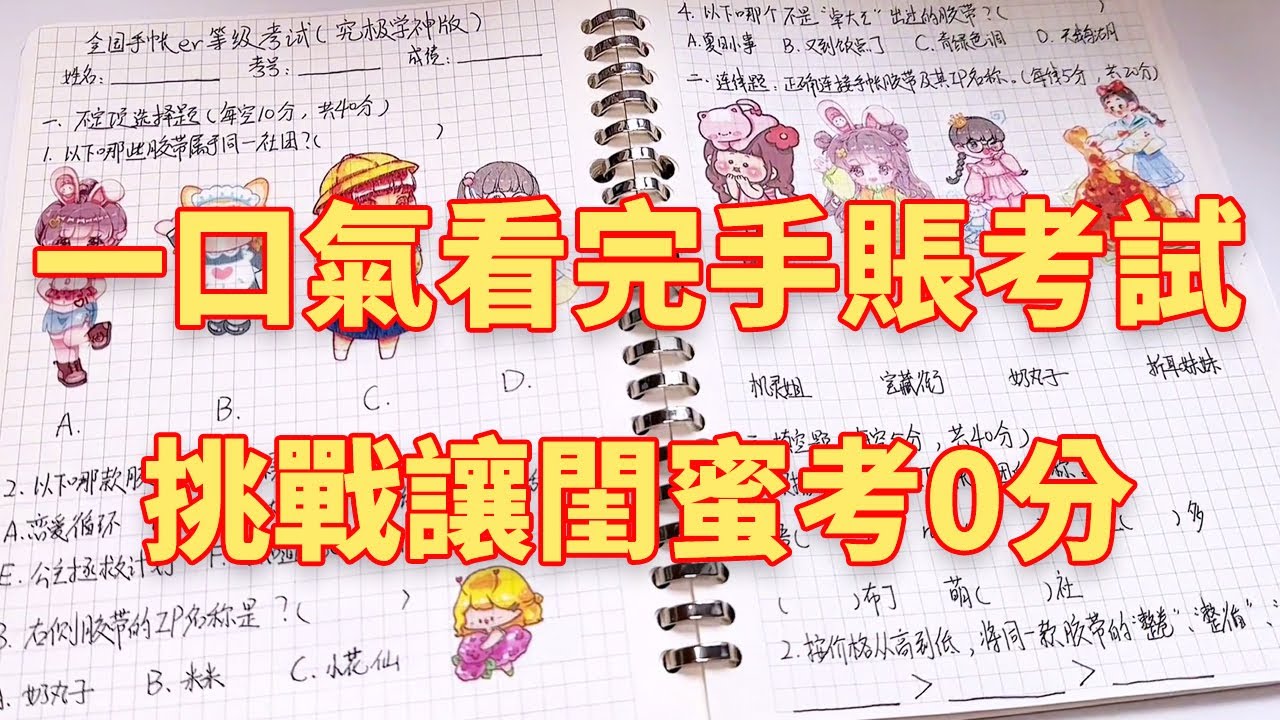 全国手帐er等级考试(究极学神版)
姓名:______ 考号:______ 成绩:______
一、不定项选择题(每空10分,共40分)
1. 以下哪些胶带属于同一社团?( )
A. B. C. D.
2. 以下哪款胶
A.恋爱循环
E. 公主拯救计划 F.
3. 右侧胶带的IP名称是?( )
A. 奶丸子 B. 米米 C. 小花仙
4. 以下哪个不是"卓大王"出过的胶带?( )
A.夏日小事 B.又到饭点了 C.青绿色调 D.
二、连线题:正确连接手帐胶带及其IP名称。(每线5分,共20分)
机灵姐 宝藏街 奶丸子 折耳妹妹
填空题 每空5分,共40分)
( )多
( )布丁 萌( )社
2. 按价格从高到低,将同一款胶带的"整卷"、"整循"、
______ > ______ > ______
一口氣看完手賬考試
挑戰讓閨蜜考0分